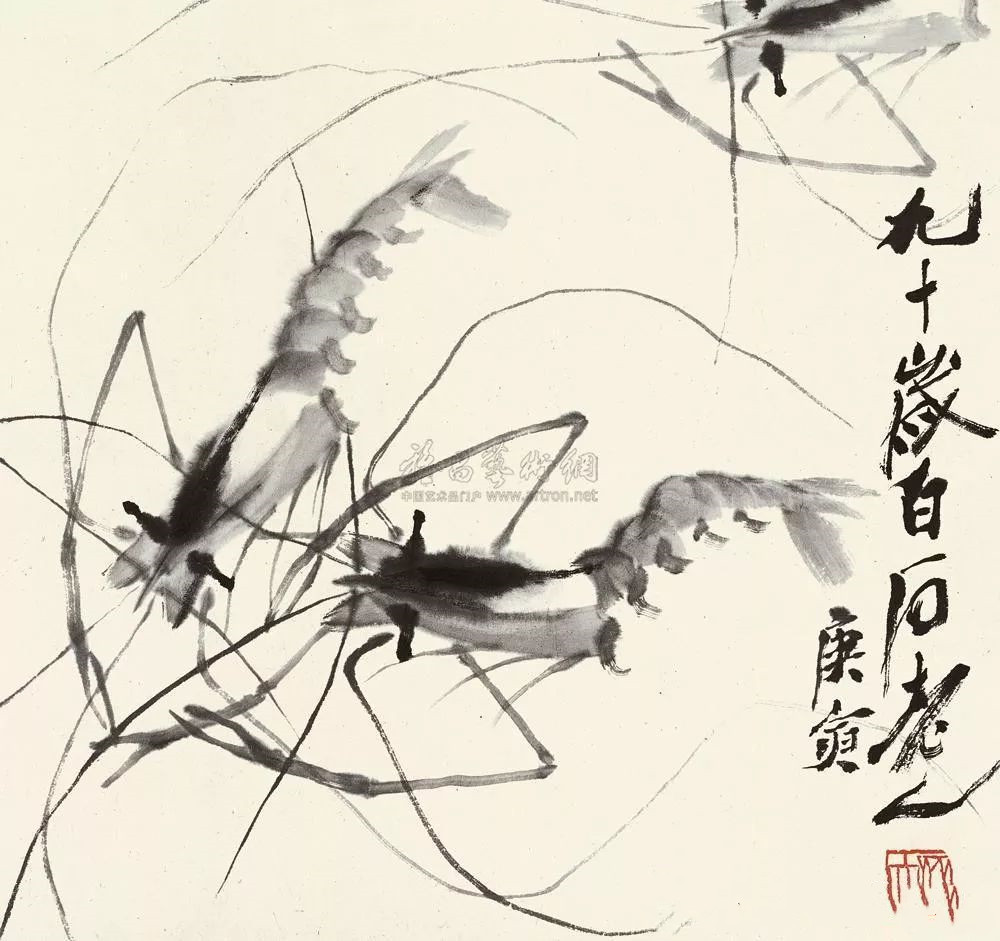 九十歲白石老人
庚寅
雅昌藝術網
中国艺术品门户 www.artron.net